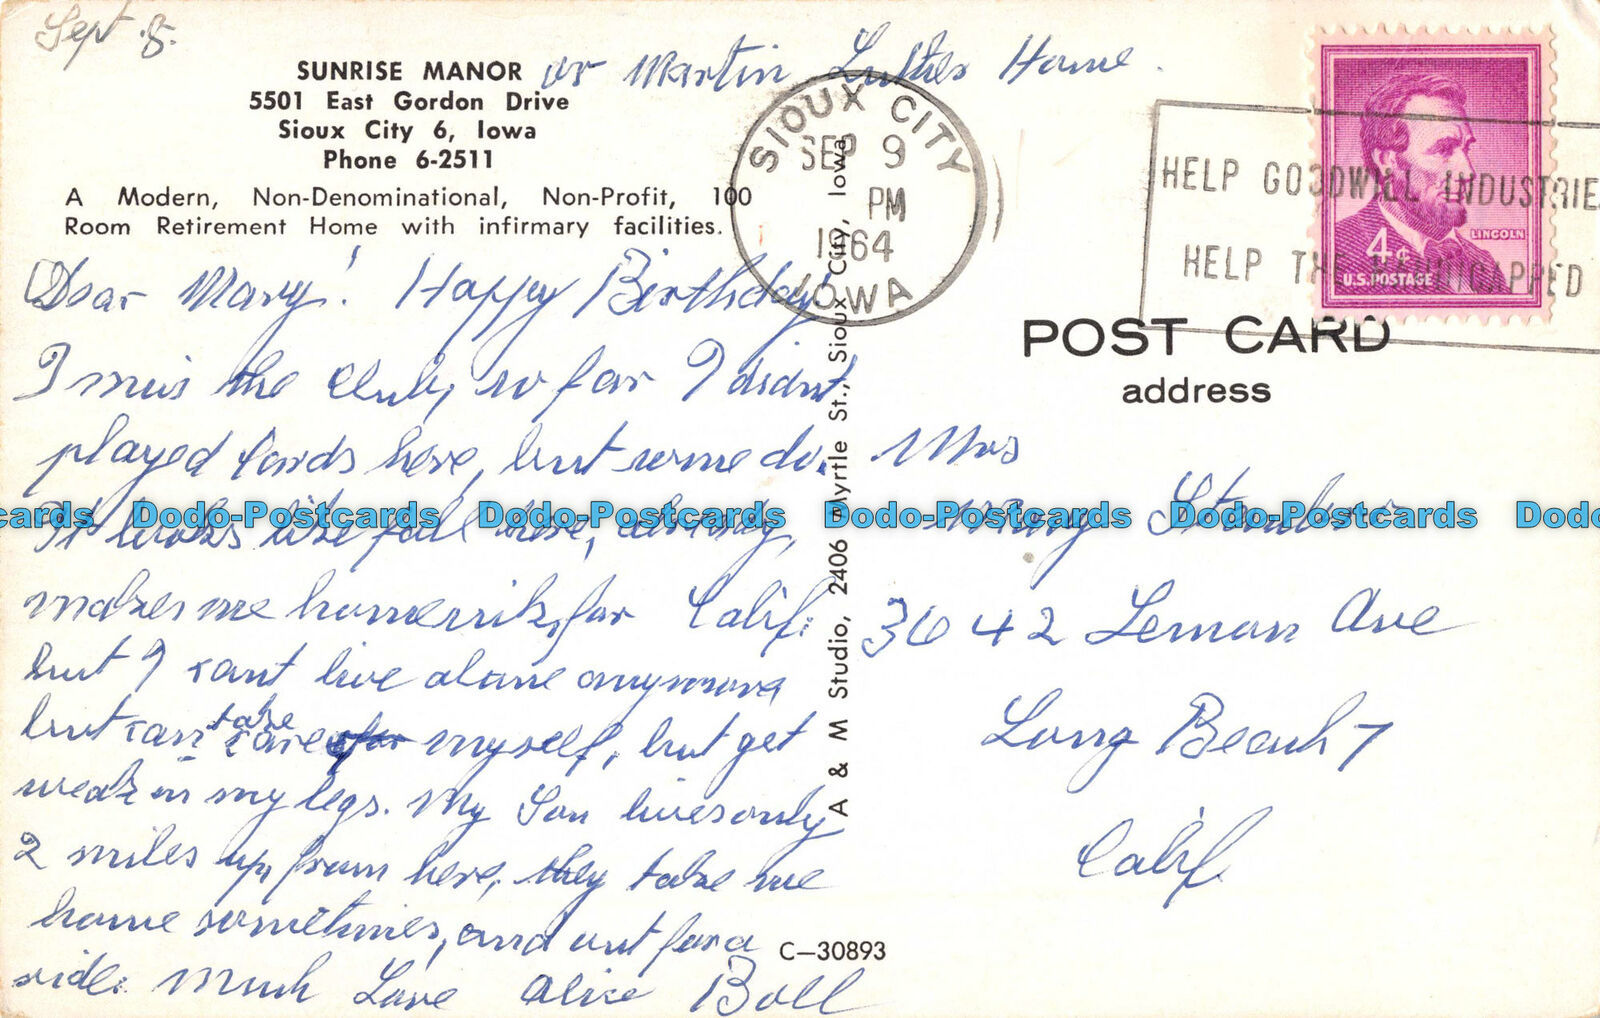 Sept. 8.
SUNRISE MANOR or Martin Luther Home.
5501 East Gordon Drive
Sioux City 6, Iowa
Phone 6-2511
A Modern, Non-Denominational, Non-Profit, 100
Room Retirement Home with infirmary facilities.
Dear Mary! Happy Birthday!
I miss the Club, so far I didnt
played Cards here, but some do.
It looks like fall here, already,
makes me homesick for Calif.
but I cant live alone anymore
but can take care of myself, but get
weak in my legs. My Son lives only
2 miles up from here, they take me
home sometimes, and out for a
ride. Much Love Alice Boll
A & M Studio, 2406 Myrtle St., Sioux City, Iowa
C-30893
SIOUX CITY
SEP 9
PM
1964
IOWA
HELP GOODWILL INDUSTRIES
HELP THE HANDICAPPED
LINCOLN
4¢
U.S. POSTAGE
POST CARD
address
Mrs
Mary
3642 Lemon Ave
Long Beach 7
Calif.
cards Dodo-Postcards Dodo-Postcards Dodo-Postcards Dodo-Postcards Dodo